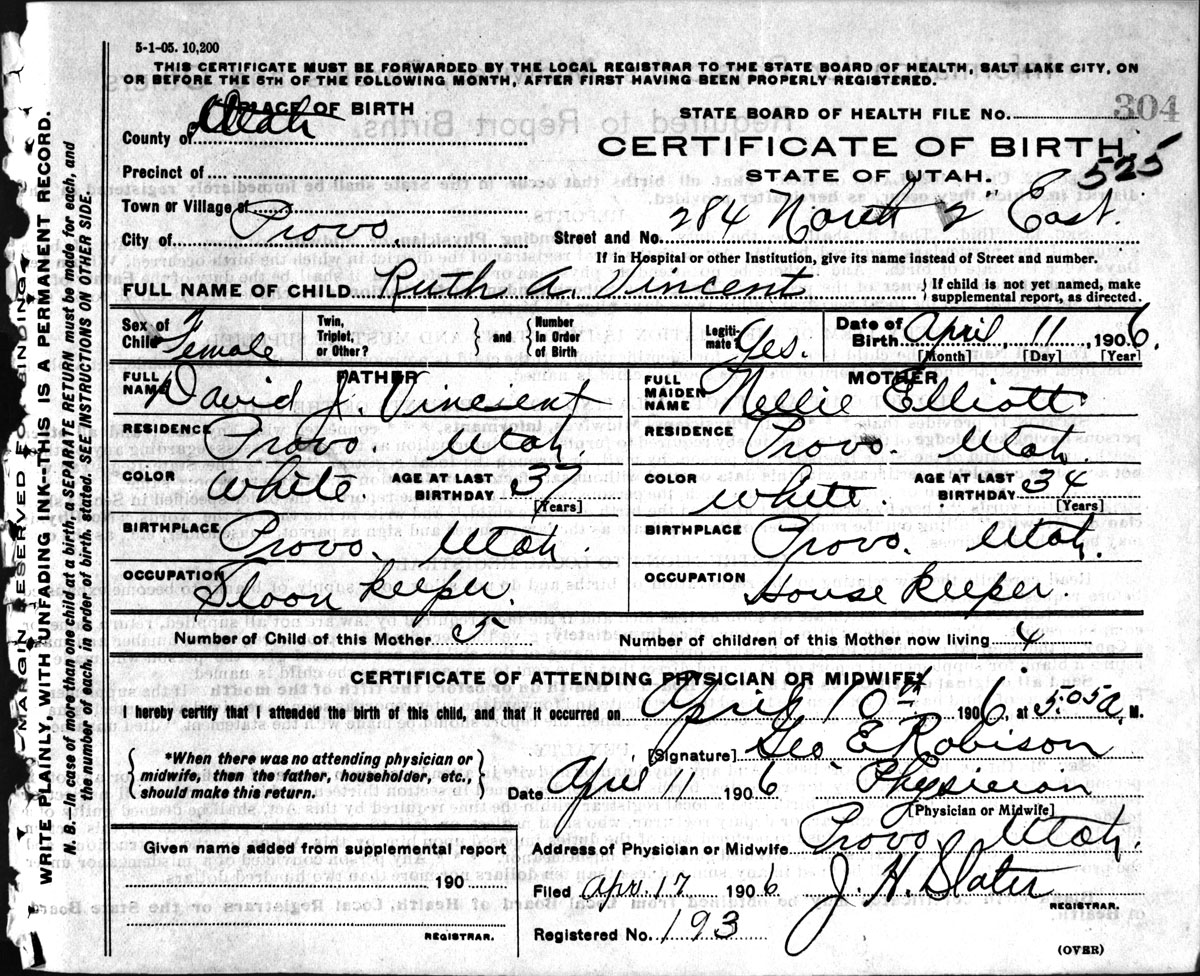 5-1-05. 10,200
THIS CERTIFICATE MUST BE FORWARDED BY THE LOCAL REGISTRAR TO THE STATE BOARD OF HEALTH, SALT LAKE CITY, ON
OR BEFORE THE 5TH OF THE FOLLOWING MONTH, AFTER FIRST HAVING BEEN PROPERLY REGISTERED.
PLACE OF BIRTH
STATE BOARD OF HEALTH FILE No. 304
County of Utah
CERTIFICATE OF BIRTH
525
Precinct of
STATE OF UTAH.
Town or Village of
City of Provo. Street and No. 284 North 2" East.
If in Hospital or other Institution, give its name instead of Street and number.
FULL NAME OF CHILD Ruth A. Vincent { If child is not yet named, make
supplemental report, as directed.
Sex of Child Female Twin, Triplet, or Other? } and { Number In Order of Birth Legiti- mate Yes. Date of Birth April, 11, 1906.
[Month] [Day] [Year]
FATHER
FULL NAME David J. Vincent
RESIDENCE Provo. Utah.
COLOR White AGE AT LAST BIRTHDAY 37
[Years]
BIRTHPLACE Provo. Utah.
OCCUPATION Sloon Keeper.
MOTHER
FULL MAIDEN NAME Nellie Elliott
RESIDENCE Provo. Utah.
COLOR White. AGE AT LAST BIRTHDAY 34
[Years]
BIRTHPLACE Provo. Utah.
OCCUPATION House Keeper.
Number of Child of this Mother 5 Number of children of this Mother now living 4
CERTIFICATE OF ATTENDING PHYSICIAN OR MIDWIFE*
I hereby certify that I attended the birth of this child, and that it occurred on April 10th 1906, at 5:05 a. M.
{ *When there was no attending physician or
midwife, then the father, householder, etc.,
should make this return. }
[Signature] Geo E Robison
Date April 11 1906 Physician
[Physician or Midwife]
Given name added from supplemental report
190
REGISTRAR.
Address of Physician or Midwife Provo Utah.
Filed Apr. 17 1906 J. H. Slater
REGISTRAR.
Registered No. 193
(OVER)
MARGIN RESERVED FOR BINDING.
WRITE PLAINLY, WITH UNFADING INK--THIS IS A PERMANENT RECORD.
N. B. In case of more than one child at a birth, a SEPARATE RETURN must be made for each, and
the number of each, in order of birth, stated. SEE INSTRUCTIONS ON OTHER SIDE.